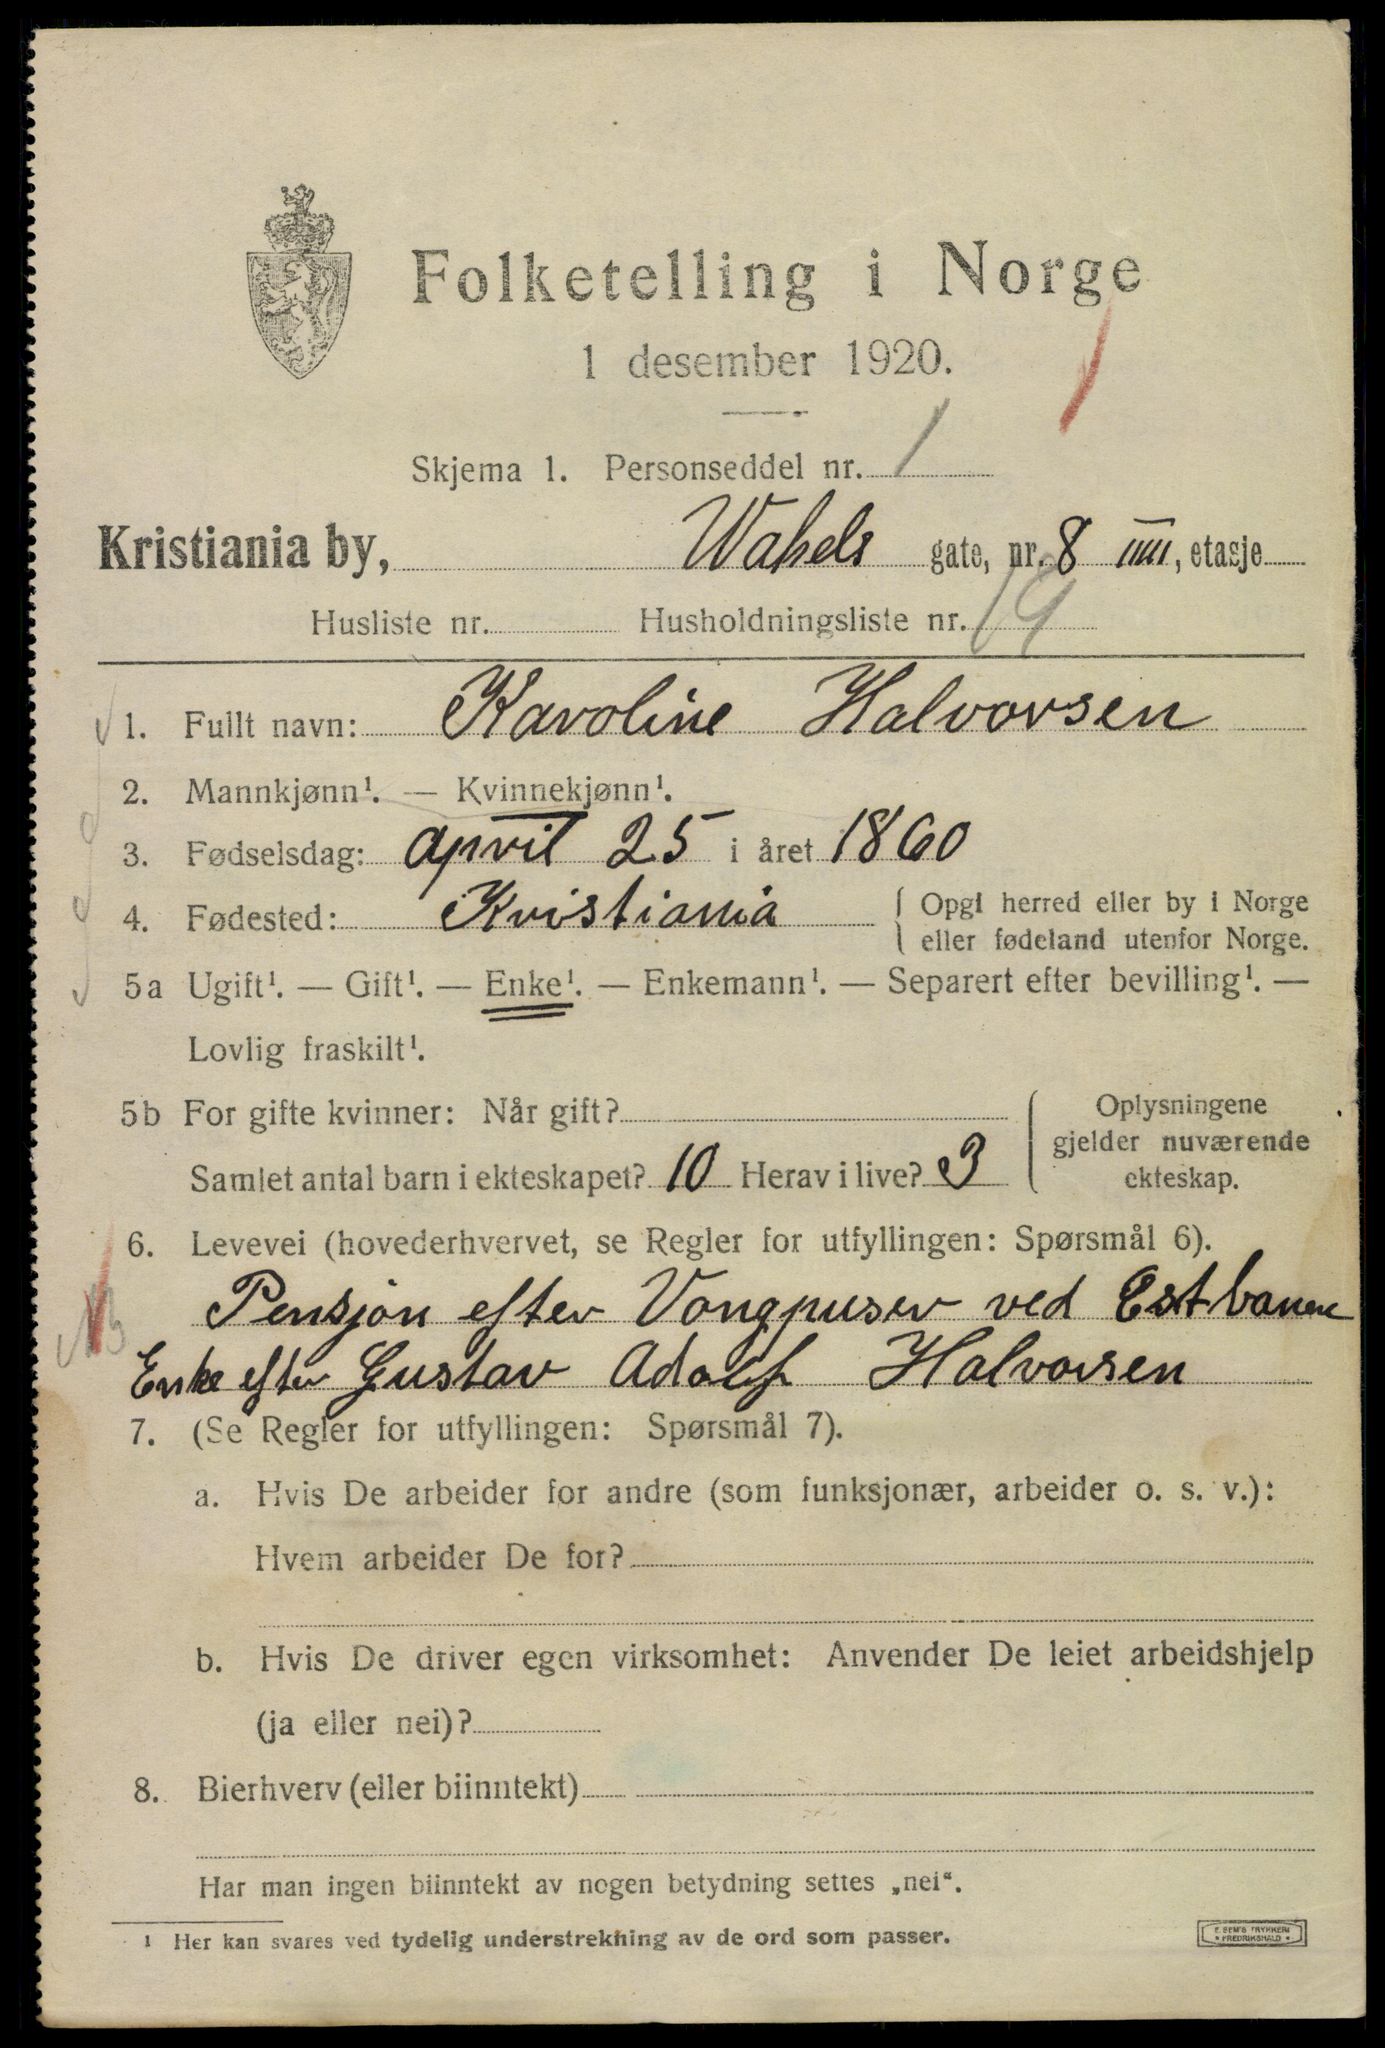 Folketelling i Norge
1 desember 1920.
1
Skjema 1. Personseddel nr. 1
Kristiania by, Wahels gate, nr. 8 IIII, etasje
Husliste nr. Husholdningsliste nr. 19
1. Fullt navn: Karoline Halvorsen
2. Mannkjønn¹. — Kvinnekjønn¹.
3. Fødselsdag: april 25 i året 1860
4. Fødested: Kristiania { Opgi herred eller by i Norge
eller fødeland utenfor Norge.
5a Ugift¹. — Gift¹. — Enke¹. — Enkemann¹. — Separert efter bevilling¹. —
Lovlig fraskilt¹.
5b For gifte kvinner: Når gift?
Samlet antal barn i ekteskapet? 10 Herav i live? 3
Oplysningene
gjelder nuværende
ekteskap.
6. Levevei (hovederhvervet, se Regler for utfyllingen: Spørsmål 6).
Pensjon efter Vongpuser ved Østbanen
Enke efter Gustav Adolf Halvorsen
7. (Se Regler for utfyllingen: Spørsmål 7).
a. Hvis De arbeider for andre (som funksjonær, arbeider o. s. v.):
Hvem arbeider De for?
b. Hvis De driver egen virksomhet: Anvender De leiet arbeidshjelp
(ja eller nei)?
8. Bierhverv (eller biinntekt)
Har man ingen biinntekt av nogen betydning settes „nei“.
¹ Her kan svares ved tydelig understrekning av de ord som passer.
E. SEM'S TRYKKERI
FREDRIKSHALD